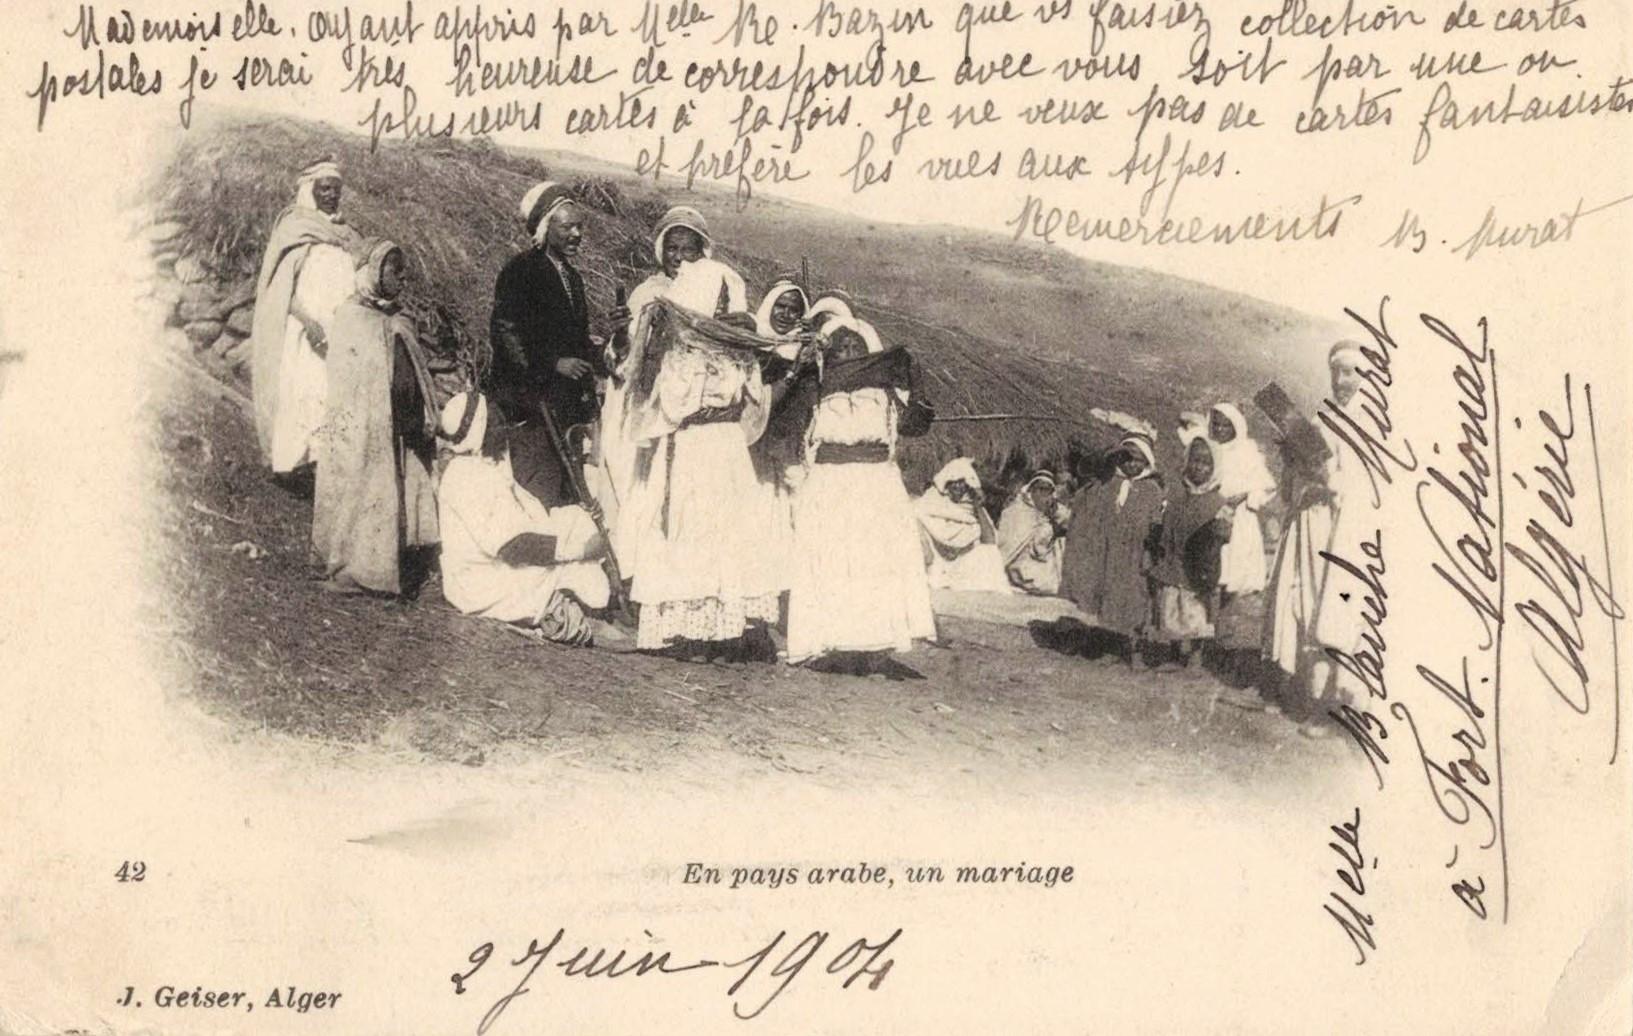 Mademoiselle. Ayant appris par Melle Re. Bazin que vs faisiez collection de cartes
postales je serai très heureuse de correspondre avec vous soit par une ou
plusieurs cartes à la fois. Je ne veux pas de cartes fantaisistes
et préfère les vues aux types.
Remerciements B. Murat
Melle Blanche Murat
à Fort. National
Algérie
42
En pays arabe, un mariage
2 Juin 1904
J. Geiser, Alger